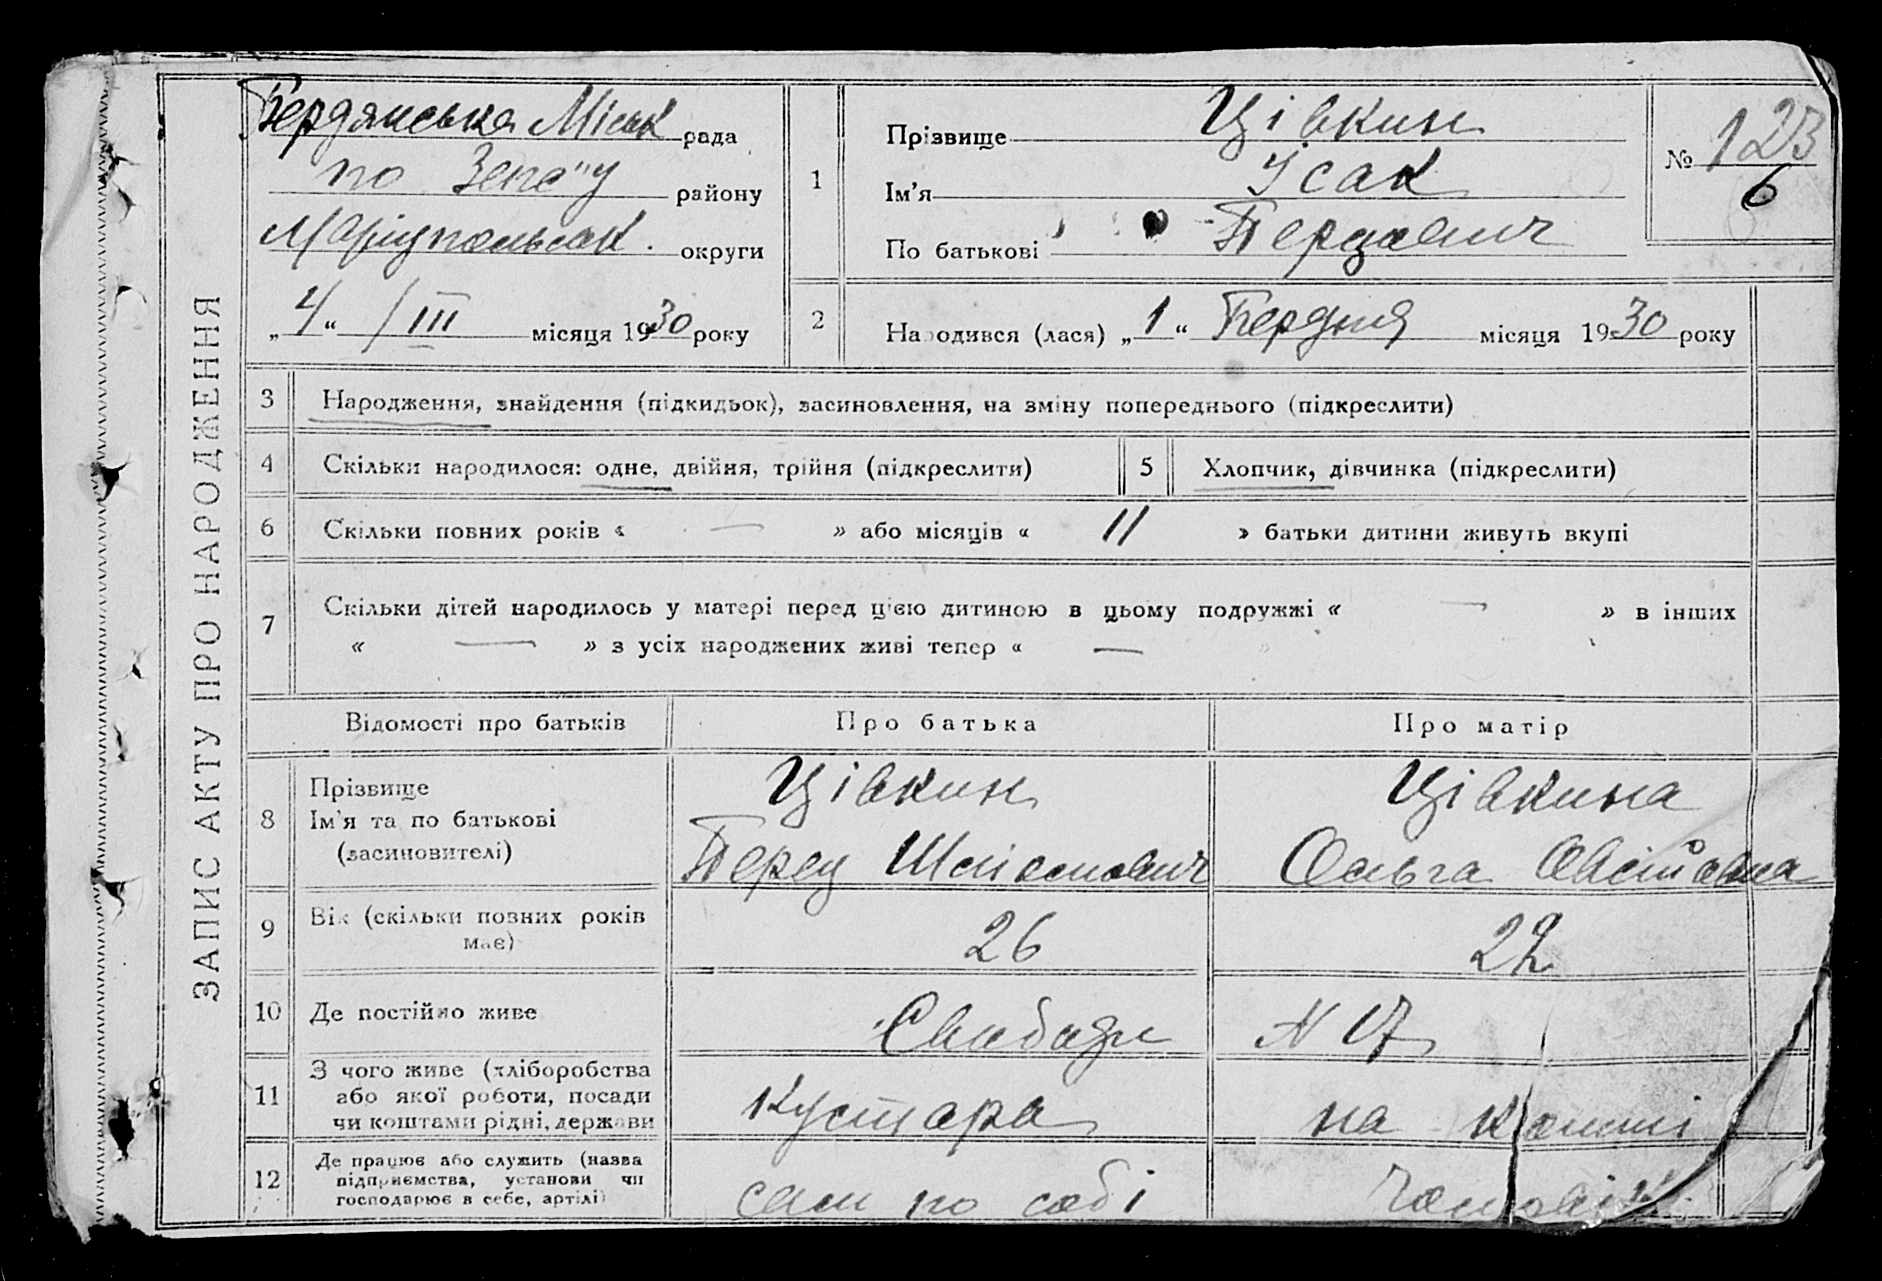 ЗАПИС АКТУ ПРО НАРОДЖЕННЯ
Бердянська Міськ рада
по району
Маріупольськ. округи
„4“ /III місяця 1930 року
1
Прізвище Цівкин
Ім'я Ісак
По батькові Перцович
№ 123
6
2
Народився (лася) „1“ Березня місяця 1930 року
3 Народження, знайдення (підкидьок), засиновлення, на зміну попереднього (підкреслити)
4 Скільки народилося: одне, двійня, трійня (підкреслити)
5 Хлопчик, дівчинка (підкреслити)
6 Скільки повних років « — » або місяців « 11 » батьки дитини живуть вкупі
7 Скільки дітей народилось у матері перед цією дитиною в цьому подружжі « — » в інших
« — » з усіх народжених живі тепер « — »
Відомості про батьків Про батька Про матір
8 Прізвище
Ім'я та по батькові
(засиновителі)
Цівкин
Перец
Цівкина
Ольга
9 Вік (скільки повних років
має)
26
22
10 Де постійно живе
Свободи N 17
11 З чого живе (хліборобства
або якої роботи, посади
чи коштами рідні, держави
Кустара
на кошті
12 Де працює або служить (назва
підприємства, установи чи
господарює в себе, артілі)
сам по собі